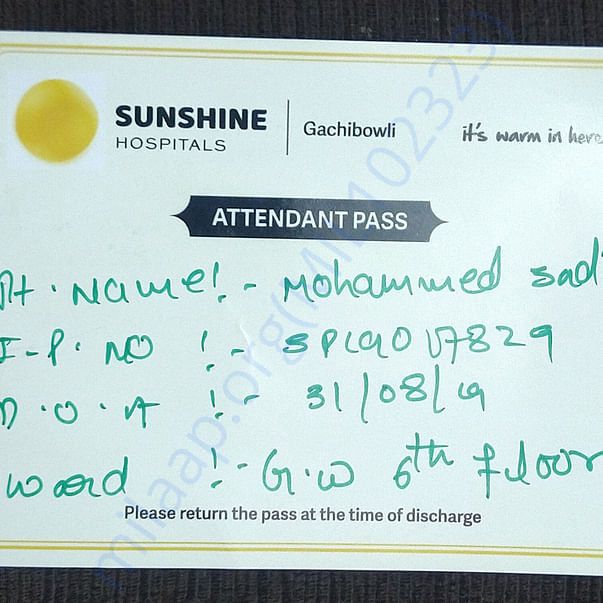 SUNSHINE
HOSPITALS
Gachibowli
it's warm in here
ATTENDANT PASS
Pt. Name! - Mohammed Sad
I-P. NO ! - SPG9017829
D.O.A ! - 31/08/19
Ward ! - G.W 6th floor
Please return the pass at the time of discharge